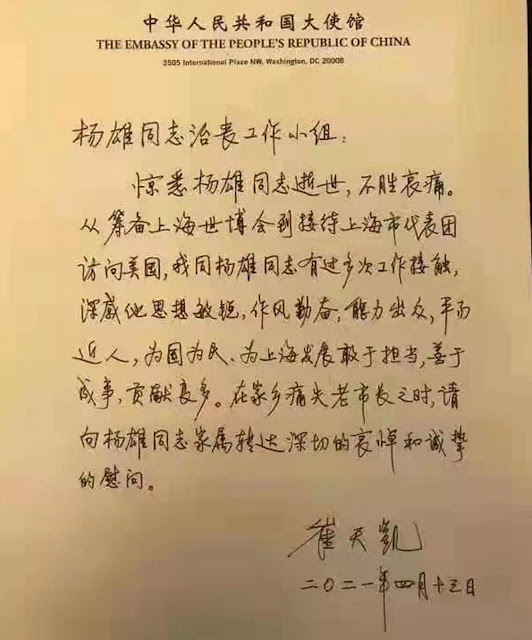 中华人民共和国大使馆
THE EMBASSY OF THE PEOPLE'S REPUBLIC OF CHINA
3505 International Place NW, Washington, DC 20008
杨雄同志治丧工作小组：
惊悉杨雄同志逝世，不胜哀痛。
从筹备上海世博会到接待上海市代表团
访问美国，我同杨雄同志有过多次工作接触，
深感他思想敏锐，作风勤奋，能力出众，平而
近人，为国为民、为上海发展敢于担当，善于
成事，贡献良多。在家乡痛失老市长之时，请
向杨雄同志家属转达深切的哀悼和诚挚
的慰问。
崔天凯
二〇二一年四月十三日